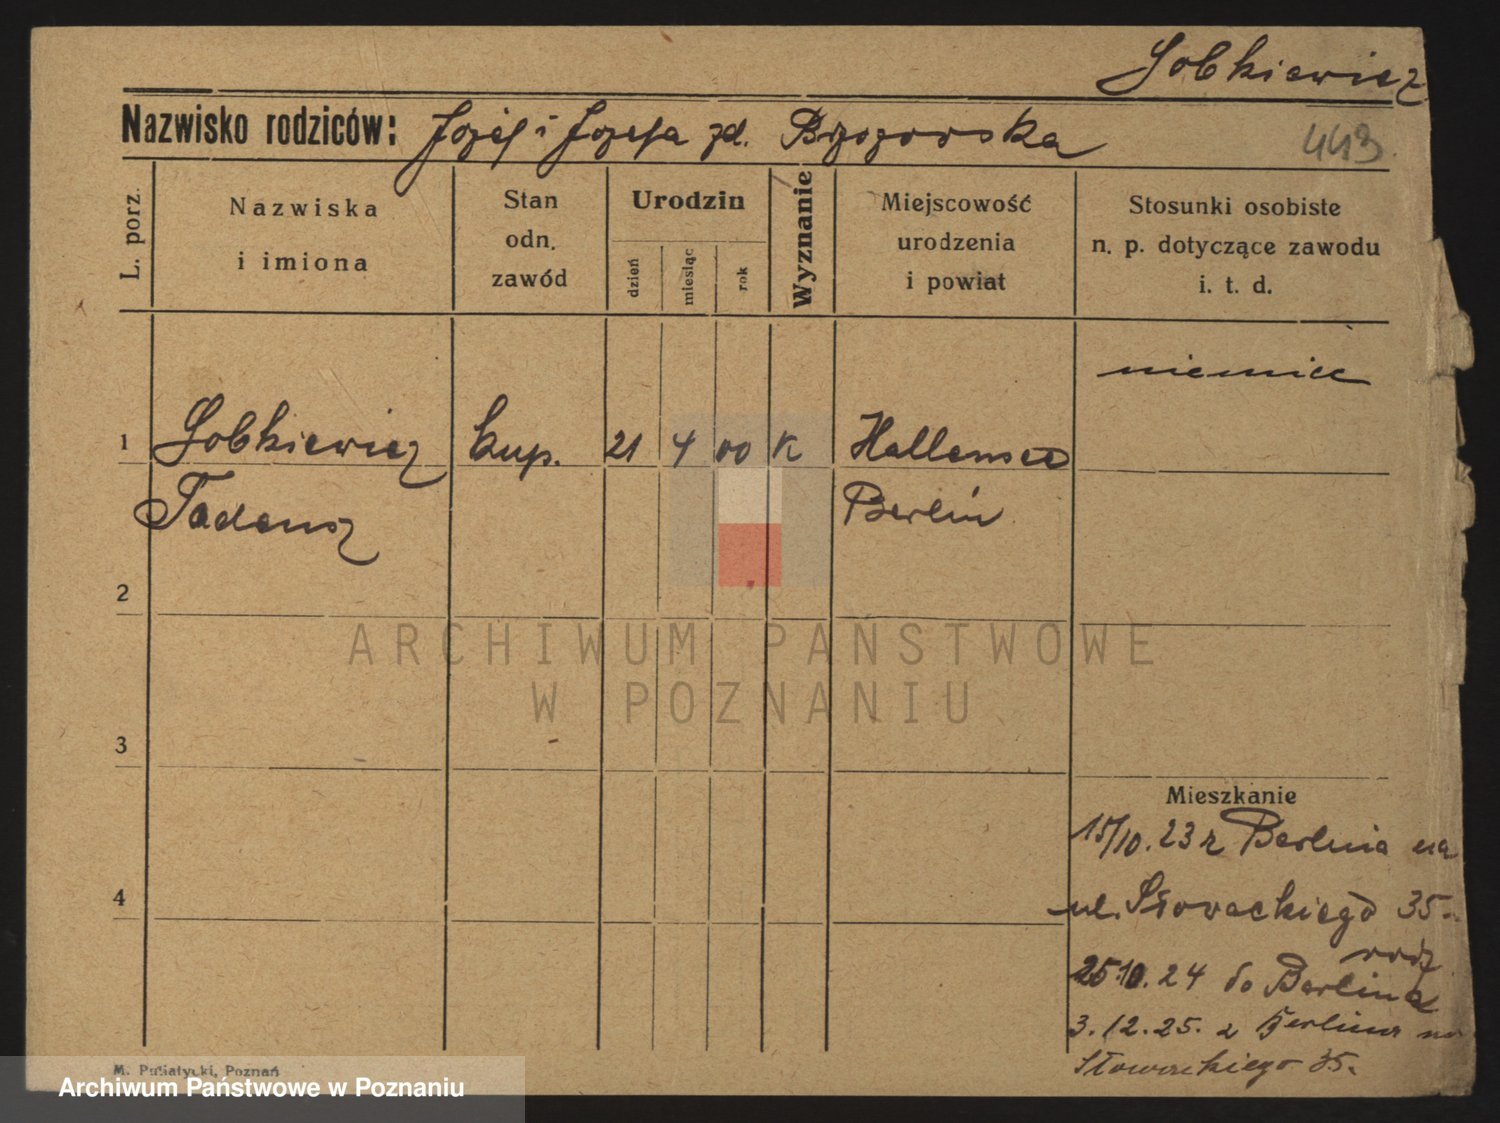 Sobkiewicz
Nazwisko rodziców: Józef i Józefa zd. Brzozowska
443
L. porz.
Nazwiska
i imiona
Stan
odn.
zawód
Urodzin
dzień
miesiąc
rok
Wyznanie
Miejscowość
urodzenia
i powiat
Stosunki osobiste
n. p. dotyczące zawodu
i. t. d.
niemiec
1 Sobkiewicz kup. 21 4 00 K Hallensee
Tadeusz Berlin
2
3
4
Mieszkanie
15/10. 23 z Berlina na
ul. Słowackiego 35.
rodz
25.10. 24 do Berlina
3. 12. 25. z Berlina na
Słowackiego 35.
M. Putiatycki, Poznań
ARCHIWUM PAŃSTWOWE
W POZNANIU
Archiwum Państwowe w Poznaniu